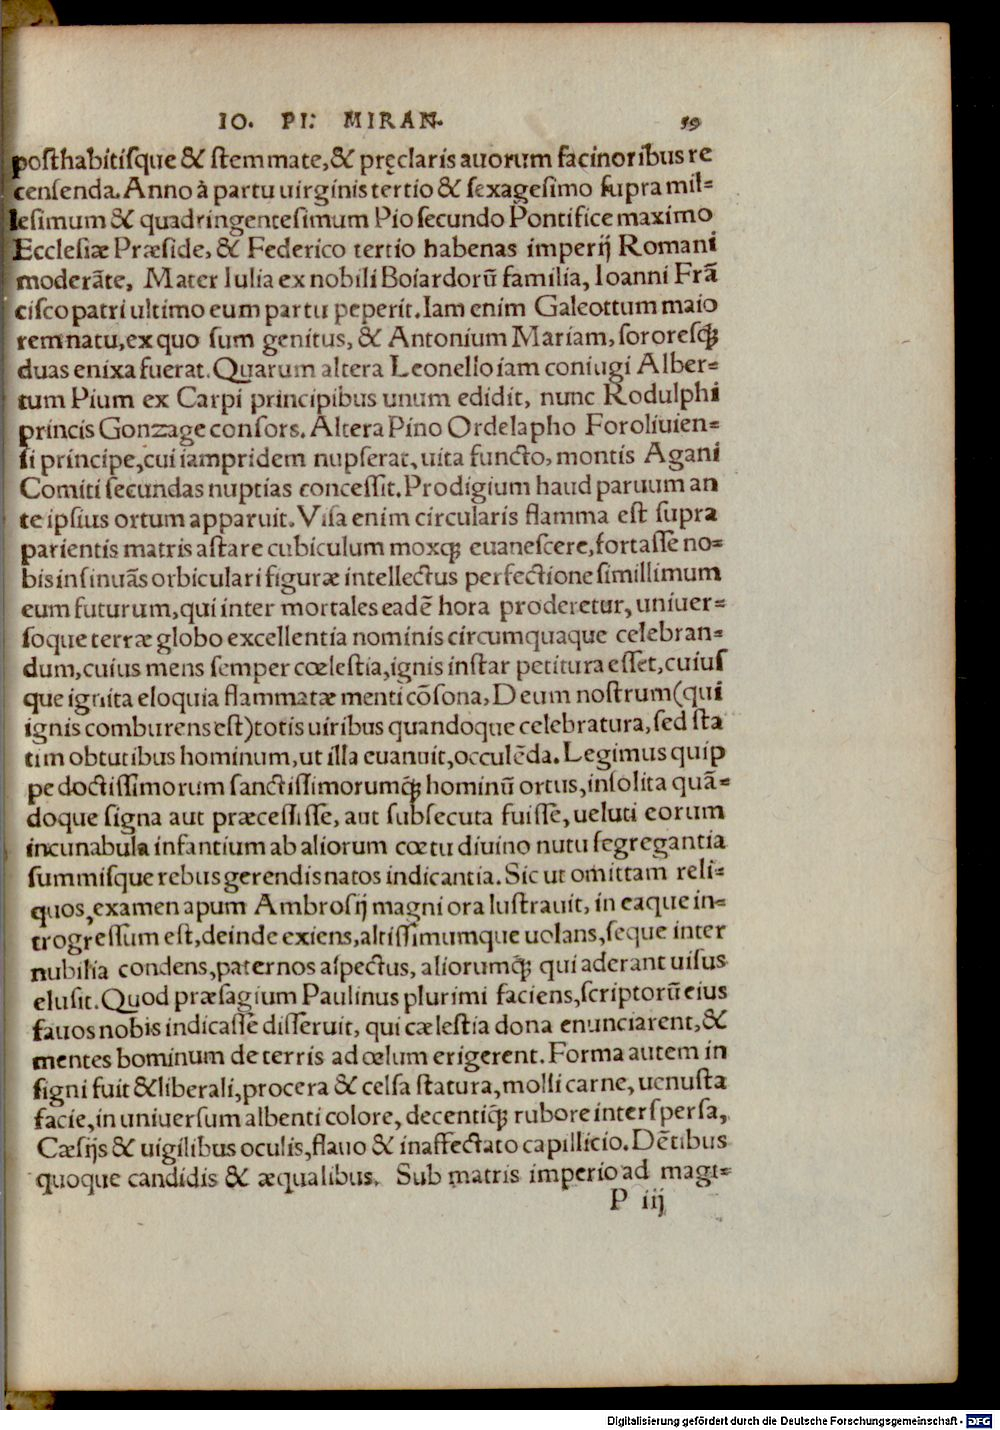 IO. PI: MIRAN.
59
posthabitisque & stemmate,& pręclaris auorum facinoribus re
censenda. Anno à partu uirginis tertio & sexagesimo supra mil=
lesimum & quadringentesimum Pio secundo Pontifice maximo
Ecclesiæ Præside, & Federico tertio habenas imperij Romani
moderãte, Mater Iulia ex nobili Boiardorũ familia, Ioanni Frã
cisco patri ultimo eum partu peperit. Iam enim Galeottum maio
rem natu, ex quo sum genitus, & Antonium Mariam, sororesq́;
duas enixa fuerat. Quarum altera Leonello iam coniugi Alber=
tum Pium ex Carpi principibus unum edidit, nunc Rodulphi
princis Gonzage consors. Altera Pino Ordelapho Foroliuien=
si principe, cui iampridem nupserat, uita functo, montis Agani
Comiti secundas nuptias concessit. Prodigium haud paruum an
te ipsius ortum apparuit. Visa enim circularis flamma est supra
parientis matris astare cubiculum moxq; euanescere, fortasse no=
bis insinuãs orbiculari figuræ intellectus perfectione simillimum
eum futurum, qui inter mortales eadẽ hora proderetur, uniuer=
soque terræ globo excellentia nominis circumquaque celebran=
dum, cuius mens semper cœlestia, ignis instar petitura esset, cuius
que ignita eloquia flammatæ menti cõsona, Deum nostrum (qui
ignis comburens est) totis uiribus quandoque celebratura, sed sta
tim obtutibus hominum, ut illa euanuit, occulẽda. Legimus quip
pe doctissimorum sanctissimorumq́; hominũ ortus, insolita quã=
doque signa aut præcessisse, aut subsecuta fuisse, ueluti eorum
incunabula infantium ab aliorum cœtu diuino nutu segregantia
summisque rebus gerendis natos indicantia. Sic ut omittam reli=
quos, examen apum Ambrosij magni ora lustrauit, in eaque in=
trogressum est, deinde exiens, altissimumque uolans, seque inter
nubilia condens, paternos aspectus, aliorumq́; qui aderant uisus
elusit. Quod præsagium Paulinus plurimi faciens, scriptorũ eius
fauos nobis indicasse disseruit, qui cælestia dona enunciarent, &
mentes bominum de terris ad œlum erigerent. Forma autem in
signi fuit & liberali, procera & celsa statura, molli carne, uenusta
facie, in uniuersum albenti colore, decentiq́; rubore interspersa,
Cæsijs & uigilibus oculis, flauo & inaffectato capillicio. Dẽtibus
quoque candidis & æqualibus. Sub matris imperio ad magi=
P iij
Digitalisierung gefördert durch die Deutsche Forschungsgemeinschaft - DFG